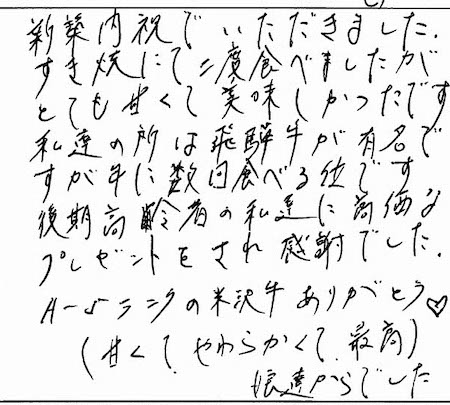 新築内祝でいただきました.
すき焼にて二度食べましたが
とても甘くて美味しかったです
私達の所は飛騨牛が有名で
すが年に数回食べる位です
後期高齢者の私達に高価な
プレゼントをされ感謝でした.
A-5ランクの米沢牛ありがとう♡
(甘くて、やわらかくて、最高)
娘達からでした